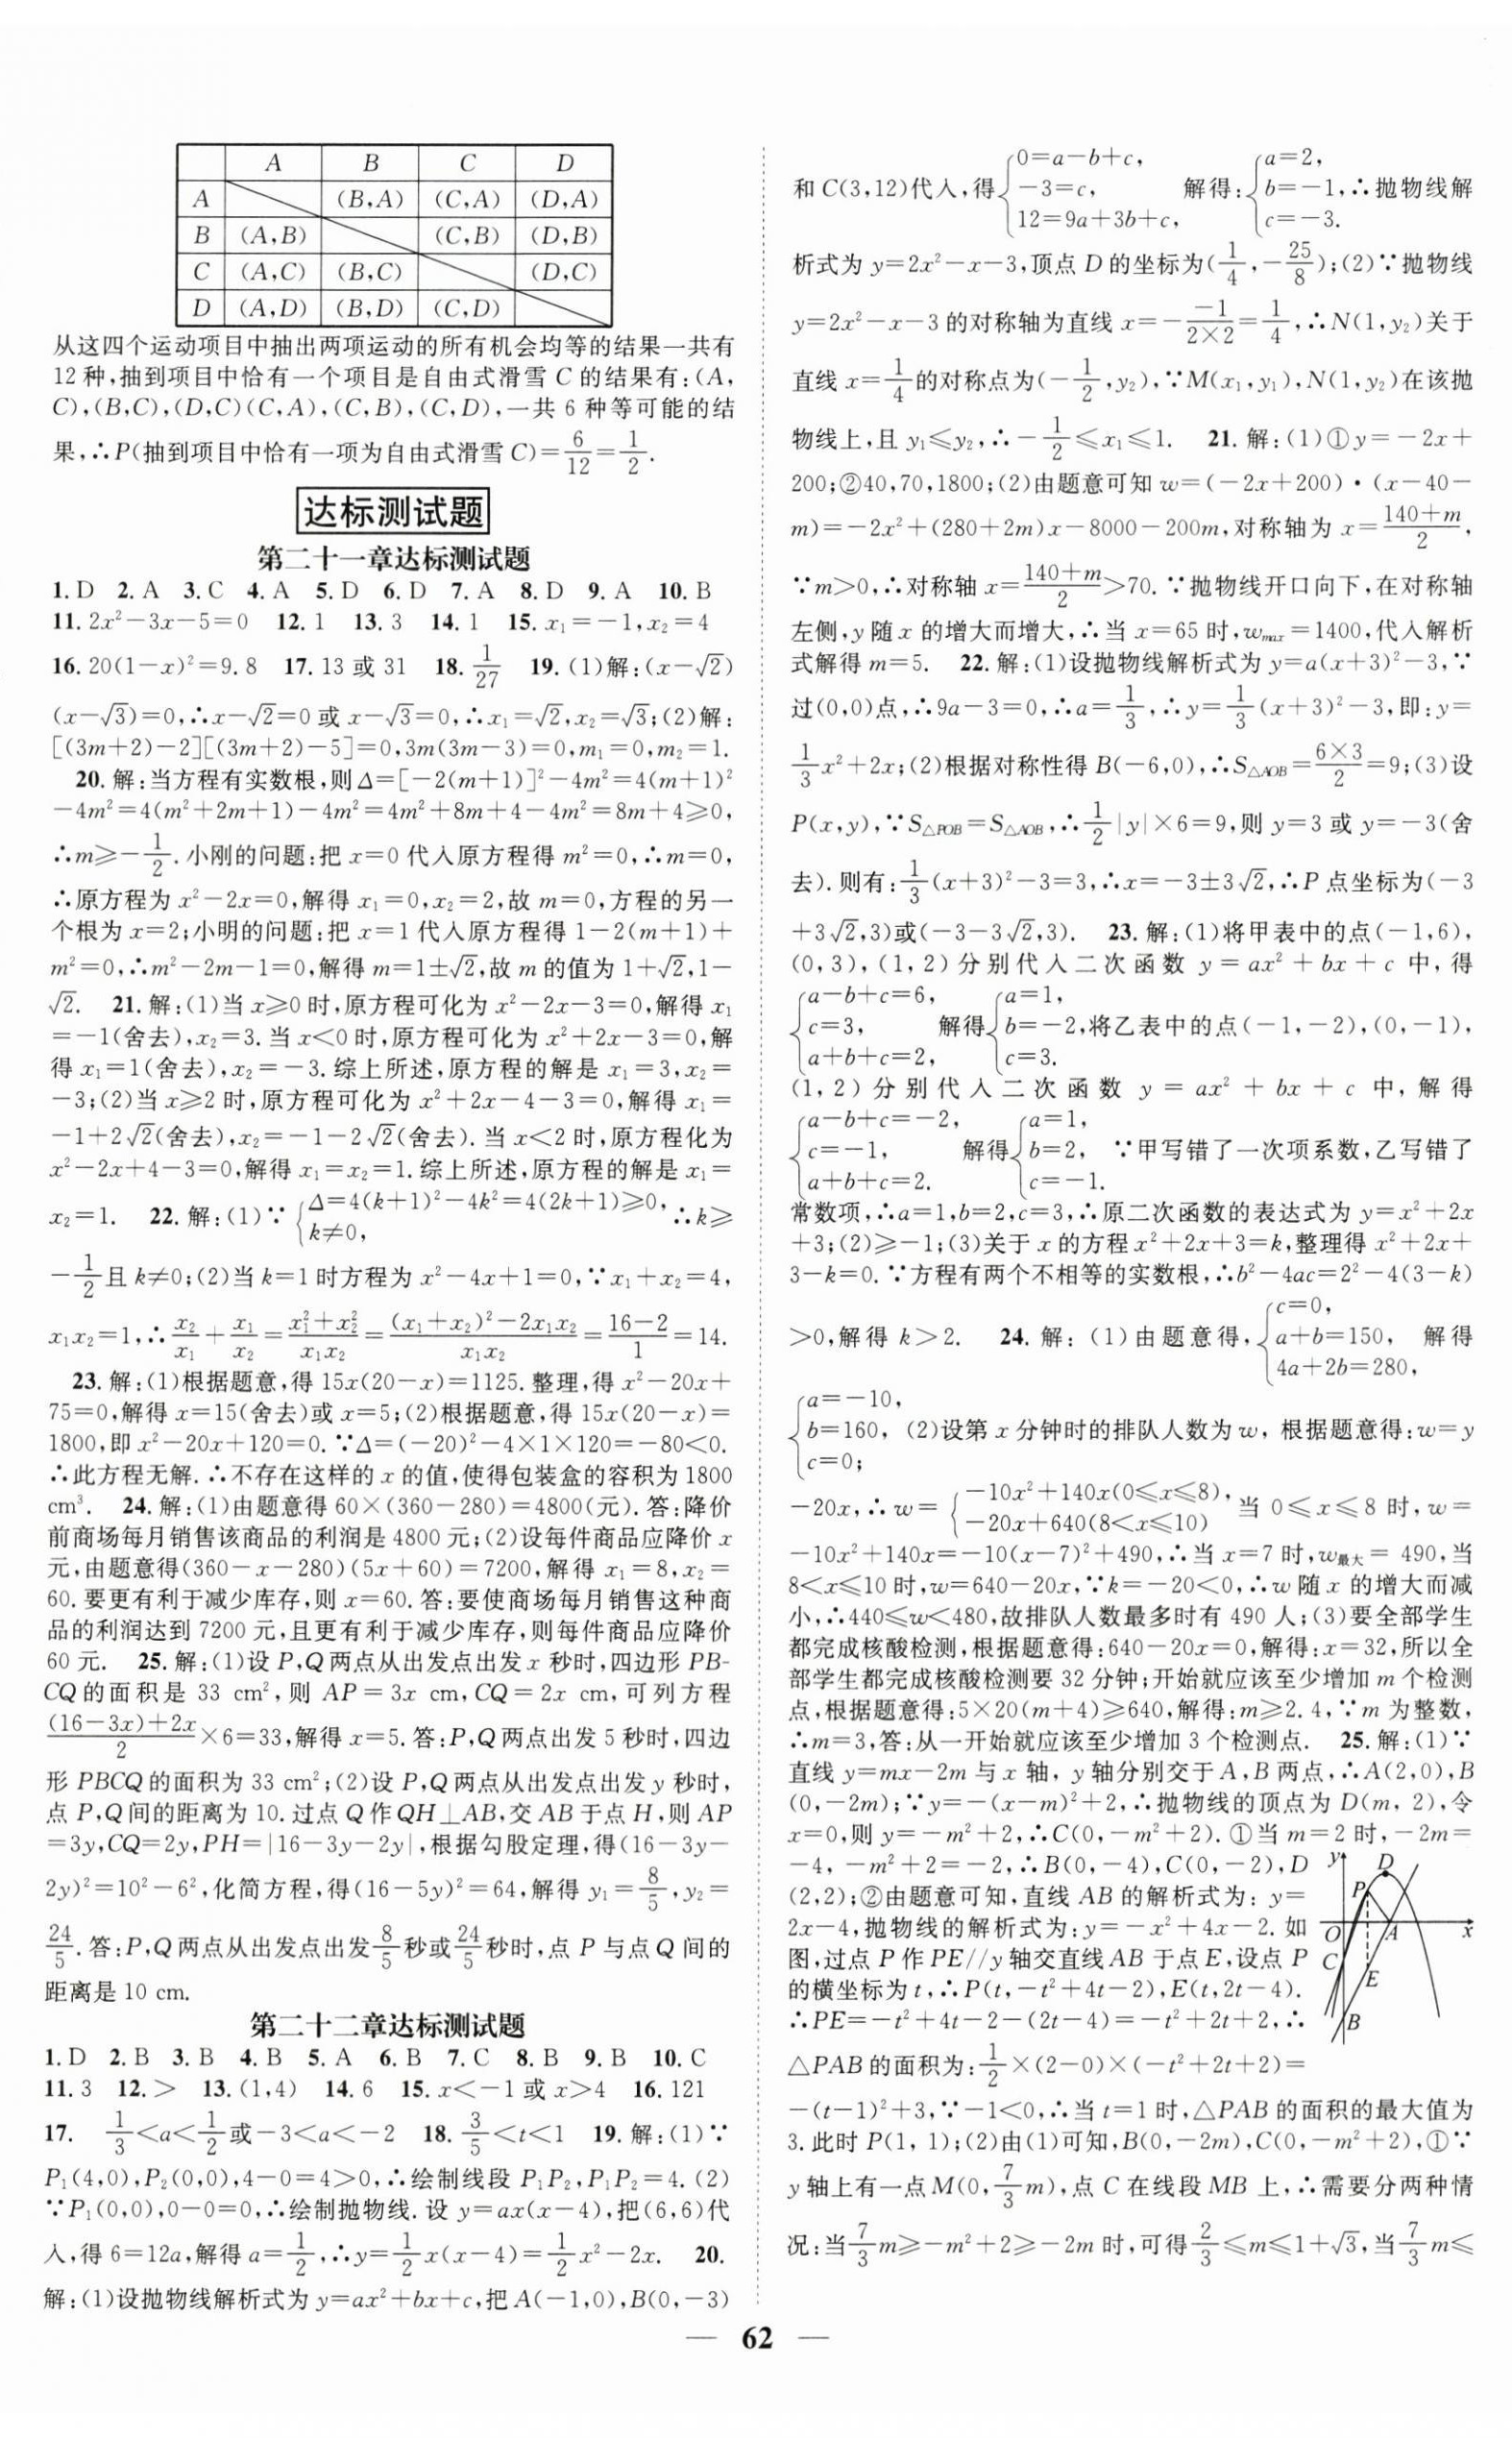 A B C D
A (B,A) (C,A) (D,A)
B (A,B) (C,B) (D,B)
C (A,C) (B,C) (D,C)
D (A,D) (B,D) (C,D)
从这四个运动项目中抽出两项运动的所有机会均等的结果一共有
12种,抽到项目中恰有一个项目是自由式滑雪C的结果有:(A,
C),(B,C),(D,C)(C,A),(C,B),(C,D),一共6种等可能的结
果,∴P(抽到项目中恰有一项为自由式滑雪C)=6/12=1/2.
达标测试题
第二十一章达标测试题
1. D 2. A 3. C 4. A 5. D 6. D 7. A 8. D 9. A 10. B
11. 2x²-3x-5=0 12. 1 13. 3 14. 1 15. x₁=-1,x₂=4
16. 20(1-x)²=9.8 17. 13或31 18. 1/27 19. (1)解:(x-√2)
(x-√3)=0,∴x-√2=0或x-√3=0,∴x₁=√2,x₂=√3;(2)解:
[(3m+2)-2][(3m+2)-5]=0,3m(3m-3)=0,m₁=0,m₂=1.
20. 解:当方程有实数根,则Δ=[-2(m+1)]²-4m²=4(m+1)²
-4m²=4(m²+2m+1)-4m²=4m²+8m+4-4m²=8m+4≥0,
∴m≥-1/2.小刚的问题:把x=0代入原方程得m²=0,∴m=0,
∴原方程为x²-2x=0,解得x₁=0,x₂=2,故m=0,方程的另一
个根为x=2;小明的问题:把x=1代入原方程得1-2(m+1)+
m²=0,∴m²-2m-1=0,解得m=1±√2,故m的值为1+√2,1-
√2. 21. 解:(1)当x≥0时,原方程可化为x²-2x-3=0,解得x₁
=-1(舍去),x₂=3.当x<0时,原方程可化为x²+2x-3=0,解
得x₁=1(舍去),x₂=-3.综上所述,原方程的解是x₁=3,x₂=
-3;(2)当x≥2时,原方程可化为x²+2x-4-3=0,解得x₁=
-1+2√2(舍去),x₂=-1-2√2(舍去).当x<2时,原方程化为
x²-2x+4-3=0,解得x₁=x₂=1.综上所述,原方程的解是x₁=
x₂=1. 22. 解:(1)∵{Δ=4(k+1)²-4k²=4(2k+1)≥0, k≠0, ∴k≥
-1/2且k≠0;(2)当k=1时方程为x²-4x+1=0,∵x₁+x₂=4,
x₁x₂=1,∴x₂/x₁+x₁/x₂=(x₁²+x₂²)/(x₁x₂)=((x₁+x₂)²-2x₁x₂)/(x₁x₂)=(16-2)/1=14.
23. 解:(1)根据题意,得15x(20-x)=1125.整理,得x²-20x+
75=0,解得x=15(舍去)或x=5;(2)根据题意,得15x(20-x)=
1800,即x²-20x+120=0.∵Δ=(-20)²-4×1×120=-80<0.
∴此方程无解.∴不存在这样的x的值,使得包装盒的容积为1800
cm³. 24. 解:(1)由题意得60×(360-280)=4800(元).答:降价
前商场每月销售该商品的利润是4800元;(2)设每件商品应降价x
元,由题意得(360-x-280)(5x+60)=7200,解得x₁=8,x₂=
60.要更有利于减少库存,则x=60.答:要使商场每月销售这种商
品的利润达到7200元,且更有利于减少库存,则每件商品应降价
60元. 25. 解:(1)设P,Q两点从出发点出发x秒时,四边形PB-
CQ的面积是33 cm²,则AP=3x cm,CQ=2x cm,可列方程
((16-3x)+2x)/2×6=33,解得x=5.答:P,Q两点出发5秒时,四边
形PBCQ的面积为33 cm²;(2)设P,Q两点从出发点出发y秒时,
点P,Q间的距离为10.过点Q作QH⊥AB,交AB于点H,则AP
=3y,CQ=2y,PH=|16-3y-2y|,根据勾股定理,得(16-3y-
2y)²=10²-6²,化简方程,得(16-5y)²=64,解得y₁=8/5,y₂=
24/5.答:P,Q两点从出发点出发8/5秒或24/5秒时,点P与点Q间的
距离是10 cm.
第二十二章达标测试题
1. D 2. B 3. B 4. B 5. A 6. B 7. C 8. B 9. B 10. C
11. 3 12. > 13. (1,4) 14. 6 15. x<-1或x>4 16. 121
17. 1/3<a<1/2或-3<a<-2 18. 3/5<t<1 19. 解:(1)∵
P₁(4,0),P₂(0,0),4-0=4>0,∴绘制线段P₁P₂,P₁P₂=4.(2)
∵P₁(0,0),0-0=0,∴绘制抛物线.设y=ax(x-4),把(6,6)代
入,得6=12a,解得a=1/2,∴y=1/2x(x-4)=1/2x²-2x. 20.
解:(1)设抛物线解析式为y=ax²+bx+c,把A(-1,0),B(0,-3)
和C(3,12)代入,得{0=a-b+c, -3=c, 12=9a+3b+c, 解得:{a=2, b=-1, c=-3. ∴抛物线解
析式为y=2x²-x-3,顶点D的坐标为(1/4,-25/8);(2)∵抛物线
y=2x²-x-3的对称轴为直线x=--1/(2×2)=1/4,∴N(1,y₂)关于
直线x=1/4的对称点为(-1/2,y₂),∵M(x₁,y₁),N(1,y₂)在该抛
物线上,且y₁≤y₂,∴-1/2≤x₁≤1. 21. 解:(1)①y=-2x+
200;②40,70,1800;(2)由题意可知w=(-2x+200)·(x-40-
m)=-2x²+(280+2m)x-8000-200m,对称轴为x=(140+m)/2,
∵m>0,∴对称轴x=(140+m)/2>70.∵抛物线开口向下,在对称轴
左侧,y随x的增大而增大,∴当x=65时,wmax=1400,代入解析
式解得m=5. 22. 解:(1)设抛物线解析式为y=a(x+3)²-3,∵
过(0,0)点,∴9a-3=0,∴a=1/3,∴y=1/3(x+3)²-3,即:y=
1/3x²+2x;(2)根据对称性得B(-6,0),∴S△AOB=(6×3)/2=9;(3)设
P(x,y),∵S△POB=S△AOB,∴1/2|y|×6=9,则y=3或y=-3(舍
去).则有:1/3(x+3)²-3=3,∴x=-3±3√2,∴P点坐标为(-3
+3√2,3)或(-3-3√2,3). 23. 解:(1)将甲表中的点(-1,6),
(0,3),(1,2)分别代入二次函数y=ax²+bx+c中,得
{a-b+c=6, c=3, a+b+c=2, 解得{a=1, b=-2, c=3. 将乙表中的点(-1,-2),(0,-1),
(1,2)分别代入二次函数y=ax²+bx+c中,解得
{a-b+c=-2, c=-1, a+b+c=2. 解得{a=1, b=2, c=-1. ∵甲写错了一次项系数,乙写错了
常数项,∴a=1,b=2,c=3,∴原二次函数的表达式为y=x²+2x
+3;(2)≥-1;(3)关于x的方程x²+2x+3=k,整理得x²+2x+
3-k=0.∵方程有两个不相等的实数根,∴b²-4ac=2²-4(3-k)
>0,解得k>2. 24. 解:(1)由题意得,{c=0, a+b=150, 4a+2b=280, 解得
{a=-10, b=160, c=0; (2)设第x分钟时的排队人数为w,根据题意得:w=y
-20x,∴w={-10x²+140x(0≤x≤8), -20x+640(8<x≤10) 当0≤x≤8时,w=
-10x²+140x=-10(x-7)²+490,∴当x=7时,w最大=490,当
8<x≤10时,w=640-20x,∵k=-20<0,∴w随x的增大而减
小,∴440≤w<480,故排队人数最多时有490人;(3)要全部学生
都完成核酸检测,根据题意得:640-20x=0,解得:x=32,所以全
部学生都完成核酸检测要32分钟;开始就应该至少增加m个检测
点,根据题意得:5×20(m+4)≥640,解得:m≥2.4,∵m为整数,
∴m=3,答:从一开始就应该至少增加3个检测点. 25. 解:(1)∵
直线y=mx-2m与x轴,y轴分别交于A,B两点,∴A(2,0),B
(0,-2m);∵y=-(x-m)²+2,∴抛物线的顶点为D(m,2),令
x=0,则y=-m²+2,∴C(0,-m²+2).①当m=2时,-2m=
-4,-m²+2=-2,∴B(0,-4),C(0,-2),D
(2,2);②由题意可知,直线AB的解析式为:y=
2x-4,抛物线的解析式为:y=-x²+4x-2.如
图,过点P作PE//y轴交直线AB于点E,设点P
的横坐标为t,∴P(t,-t²+4t-2),E(t,2t-4).
∴PE=-t²+4t-2-(2t-4)=-t²+2t+2,∴
△PAB的面积为:1/2×(2-0)×(-t²+2t+2)=
y D P O A x C E B
-(t-1)²+3,∵-1<0,∴当t=1时,△PAB的面积的最大值为
3.此时P(1,1);(2)由(1)可知,B(0,-2m),C(0,-m²+2),①∵
y轴上有一点M(0,7/3m),点C在线段MB上,∴需要分两种情
况:当7/3m≥-m²+2≥-2m时,可得2/3≤m≤1+√3,当7/3m≤
— 62 —